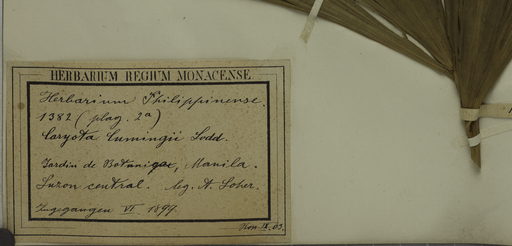 HERBARIUM REGIUM MONACENSE.
Herbarium Philippinense.
1382 (plag. 2a)
Caryota Cumingii Lodd.
Jardin de Botanique, Manila.
Luzon central. leg. A. Loher.
Zugegangen VI 1897.
Kon. IX. 03.